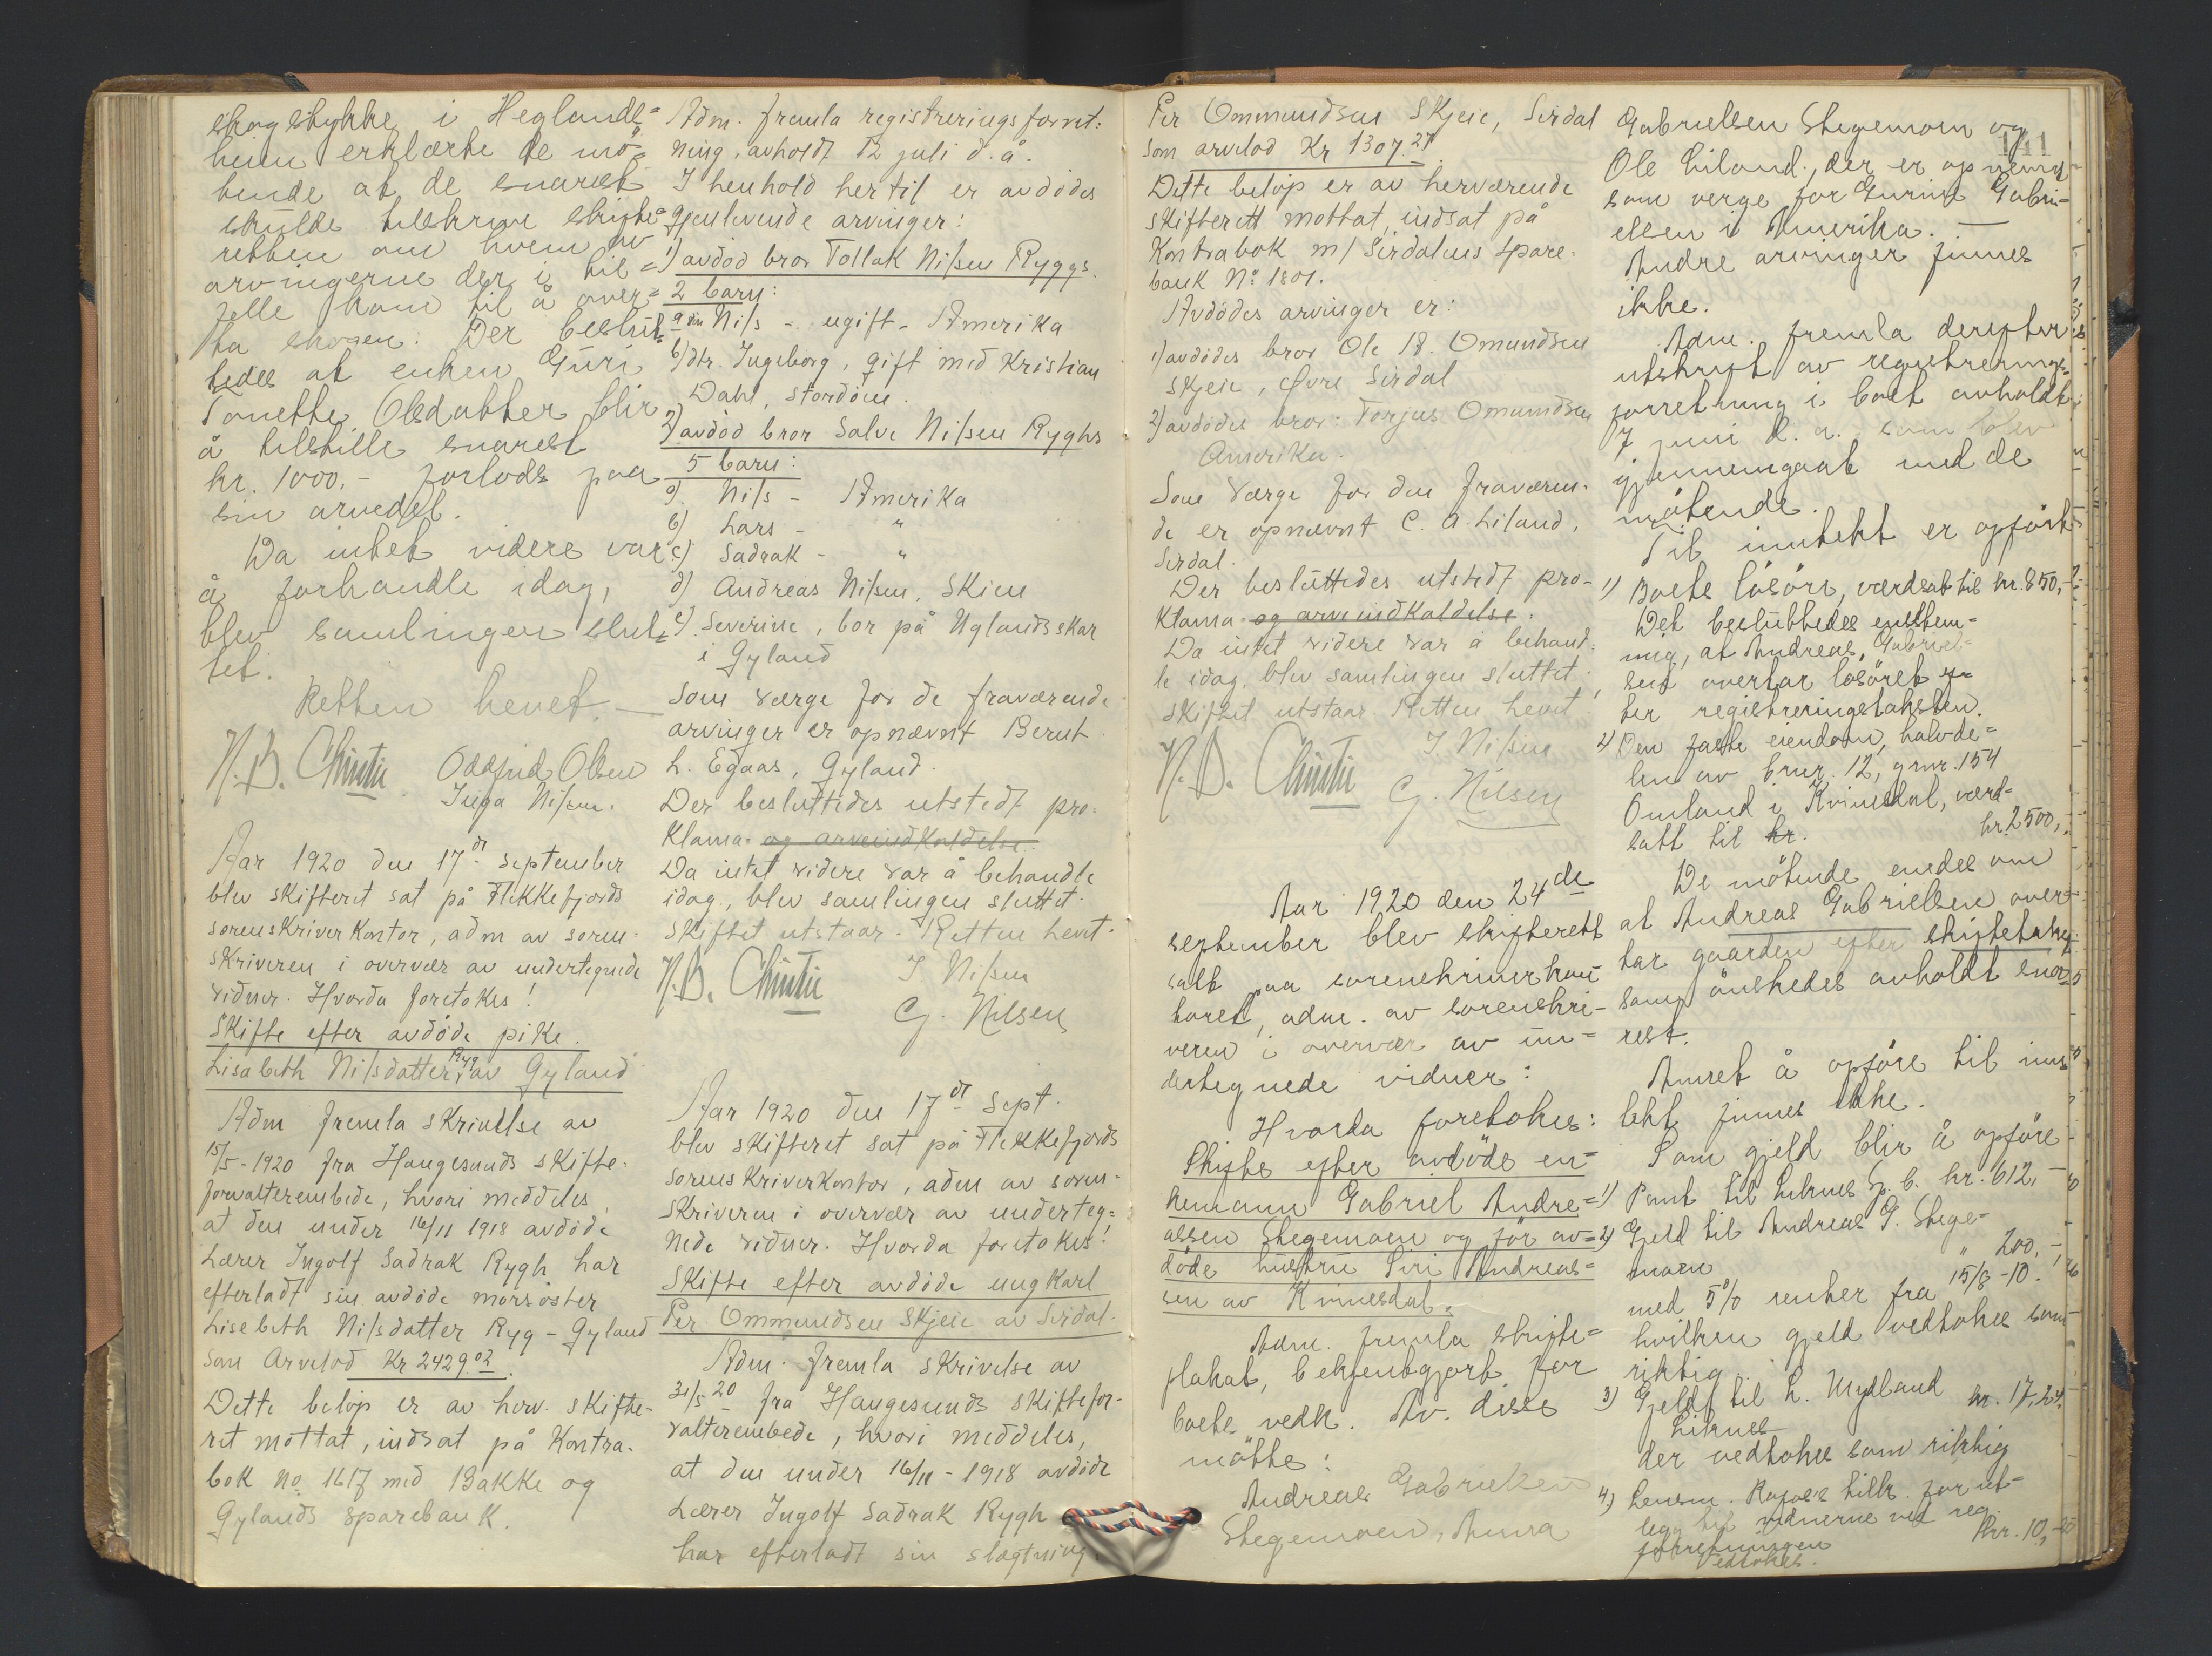 skogstykke i Heglands=
heien erklærte de mö=
tende at de snarest
skulde tilskrive skifte=
retten om hvem av
arvingerne der i til=
felle kom til å over=
ta skogen. Der beslut=
tedes at enken Guri
Tonette Olsdatter blir
å tilstille snarest
kr. 1000.- forlods paa
sin arvedel.
Da intet videre var
å forhandle idag,
blev samlingen slut=
tet.
Retten hevet. —
N.B. Christie
Oddfrid Olsen
Inga Nilsen.
Aar 1920 den 17de september
blev skifteret sat på Flekkefjords
sorenskriverkontor, adm av soren-
skriveren i overvær av undertegnede
vidner. Hvorda foretokes!
Skifte efter avdöde pike
Lisabeth Nilsdatter Ryg av Gyland
Adm fremla skrivelse av
15/5-1920 fra Haugesunds skifte-
forvalterembede, hvori meddeles
at den under 16/11 1918 avdöde
Lærer Ingolf Sadrak Rygh har
efterladt sin avdöde morsöster
Lisebeth Nilsdatter Ryg - Gyland
som Arvelod Kr 2429.02.
Dette belöp er av herv. skifte-
ret mottat, indsat på Kontra-
bok No. 1617 med Bakke og
Gylands sparebank.
Adm. fremla registreringsforret-
ning, avholdt 12 juli d.å.
I henhold hertil er avdödes
gjenlevende arvinger:
1) avdöd bror Tollak Nilsen Ryggs.
2 barn:
a) sön Nils - ugift - Amerika
b) dtr. Ingeborg, gift med Kristian
Dahl, Stordöen.
2) avdöd bror Salve Nilsen Ryghs
5 barn:
a). Nils - Amerika
b) Lars - "
c) Sadrak - "
d) Andreas Nilsen, Skien
e). Severine, bor på Uglandsskar
i Gyland
Som værge for de fraværende
arvinger er opnævnt Bernt
L. Egaas, Gyland.
Der besluttedes utstedt pro-
klama og arveindkaldelse.
Da intet videre var å behandle
idag, blev samlingen sluttet.
Skiftet utstaar. Retten hevet.
N.B. Christie
I. Nilsen
G. Nilsen
Aar 1920 den 17de sept.
blev skifteret sat på Flekkefjords
sorenskriverkontor, adm av soren-
skriveren i overvær av underteg=
nede vidner. Hvorda foretokes!
Skifte efter avdöde ungkarl
Per Ommundsen Skjeie av Sirdal.
Adm. fremla skrivelse av
31/5 20 fra Haugesunds skiftefor-
valterembede, hvori meddeles,
at den under 16/11-1918 avdöde
Lærer Ingolf Sadrak Rygh
har efterladt sin slægtning
Per Ommundsen Skjeie, Sirdal
som arvelod Kr 1307.27.
Dette belöp er av herværende
skifterett mottat, indsat på
Kontrabok m/ Sirdalens spare-
bank No. 1801.
Avdödes arvinger er:
1) avdödes bror Ole B. Omundsen
Skjeie, Øvre Sirdal
2) avdödes bror: Torjus Omundsen
Amerika.
Som værge for den fraværen-
de er opnævnt C. A. Liland,
Sirdal.
Der besluttedes utstedt pro-
klama og arveindkaldelse.
Da intet videre var å behand-
le idag, blev samlingen sluttet.
Skiftet utstaar. Retten hevet
N.B. Christie
I. Nilsen
G. Nilsen
Aar 1920 den 24de
september blev skifterett
satt paa sorenskriverkon=
toret, adm. av sorenskri-
veren i overvær av un=
dertegnede vidner:
Hvorda foretokes:
Skifte efter avdöde en=
kemann Gabriel Andre=
assen Stegemoen og før av=
döde hustru Siri Andreas=
sen av Kvinesdal.
Adm. fremla skifte=
plakat, bekjentgjort for
boets vedk. Av disse
mötte:
Andreas Gabrielsen
Stegemoen, Anna
Gabrielsen Stegemoen og
Ole Liland, der er opnevnt
som verge for Gunild Gabri-
elsen i Amerika. —
Andre arvinger finnes
ikke.
Adm. fremla derefter
utskrift av registrerings=
forretning i boet avholdt
7 juni d.a. som blev
gjennemgaat med de
mötende.
Til inntekt er opfört
1) Boets lösöre, værdsat til kr. 850,-
Det besluttedes enstem=
mig, at Andreas Gabriel=
sen overtar lösöret ef=
ter registreringstaksten.
2) Den faste eiendom, halvde=
len av bnr. 12, gnr. 154
Omland i Kvinesdal, værd=
satt til kr. kr. 2500,-
De mötende enedes om
at Andreas Gabrielsen over=
tar gaarden efter skiftetakst
som önskedes avholdt sna=
rest.
Annet å opföre til inn=
tekt finnes ikke.
Som gjeld blir å opföre
1) Pant til Liknes Sp. b. kr. 612,-
2) Gjeld til Andreas G. Stege=
moen " 200.-
med 5% renter fra 15/8-10.
hvilken gjeld vedtokes som
riktig.
3) Gjeld til L. Mydland kr. 17,24.
Liknes
der vedtokes som riktig
4.) Lensm. Rafoss tilk. for ut=
legg til vidnerne ved reg.
forretningen kr. 10,-
Vedtokes.